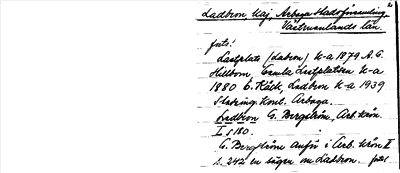 Ladbron Kaj, Arboga Stadsförsamling,
Västmanlands län.
forts.
Lastplats (Labron) K-a 1879 A.G.
Hillbom, Gamla Lastplatsen K-a
1880 C. Röck, Ladbron K-a 1939
Stadsing. Kont. Arboga.
Ladbron G. Bergström, Arb. krön.
I s 180.
G. Bergström anför i Arb. krön II
s. 242 en sägen om Ladbron. forts